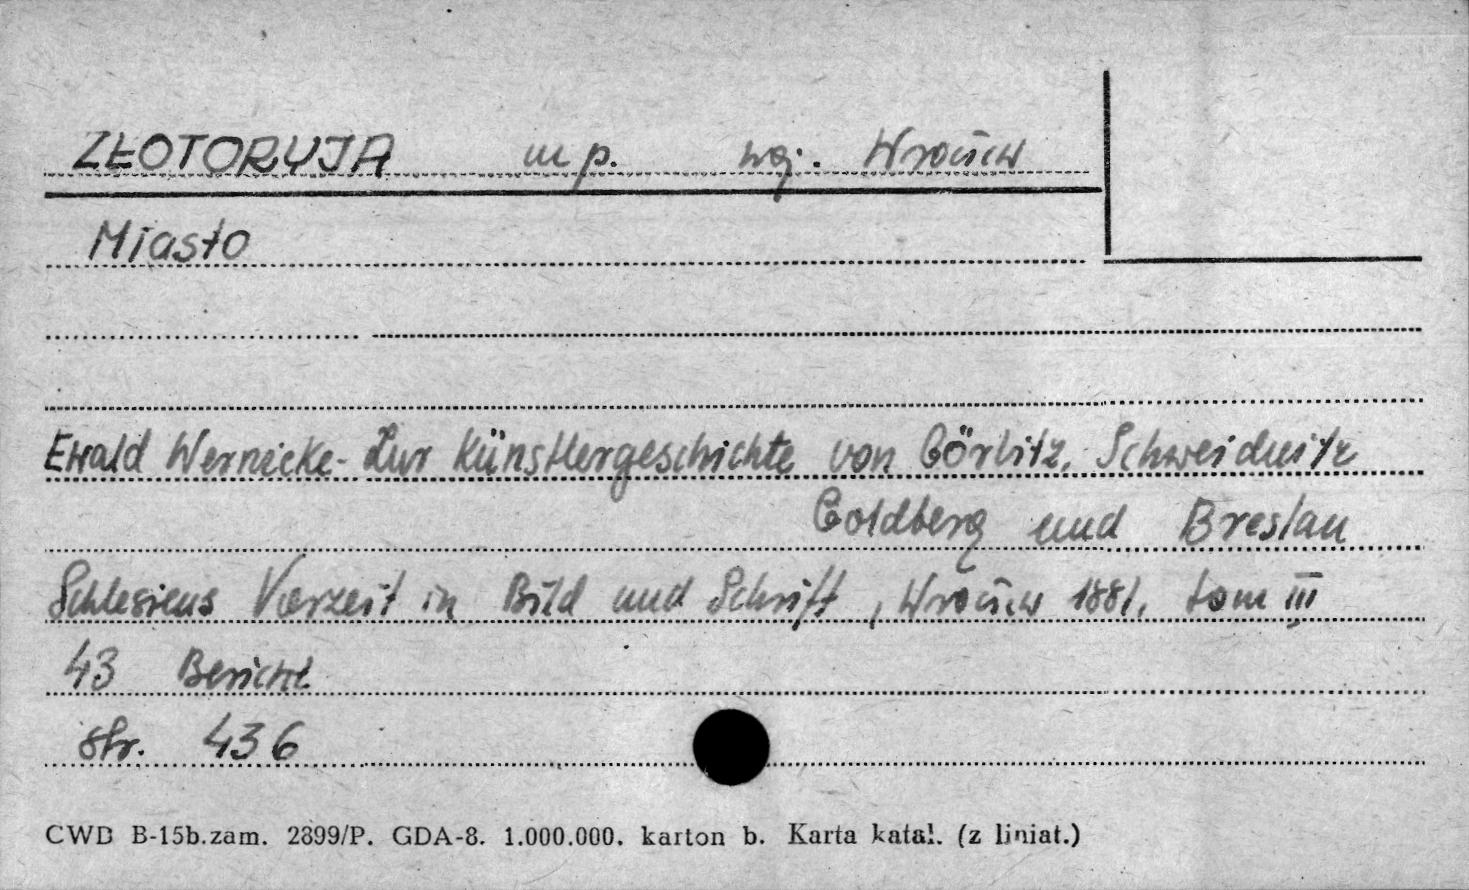 ZŁOTORYJA m p. woj. Wrocław
Miasto
Ewald Wernicke - Zur Künstlergeschichte von Görlitz, Schweidnitz
Goldberg und Breslau
Schlesiens Vorzeit in Bild und Schrift, Wrocław 1881, tom III
43 Bericht
str. 436
CWD B-15b.zam. 2899/P. GDA-8. 1.000.000. karton b. Karta katal. (z liniat.)